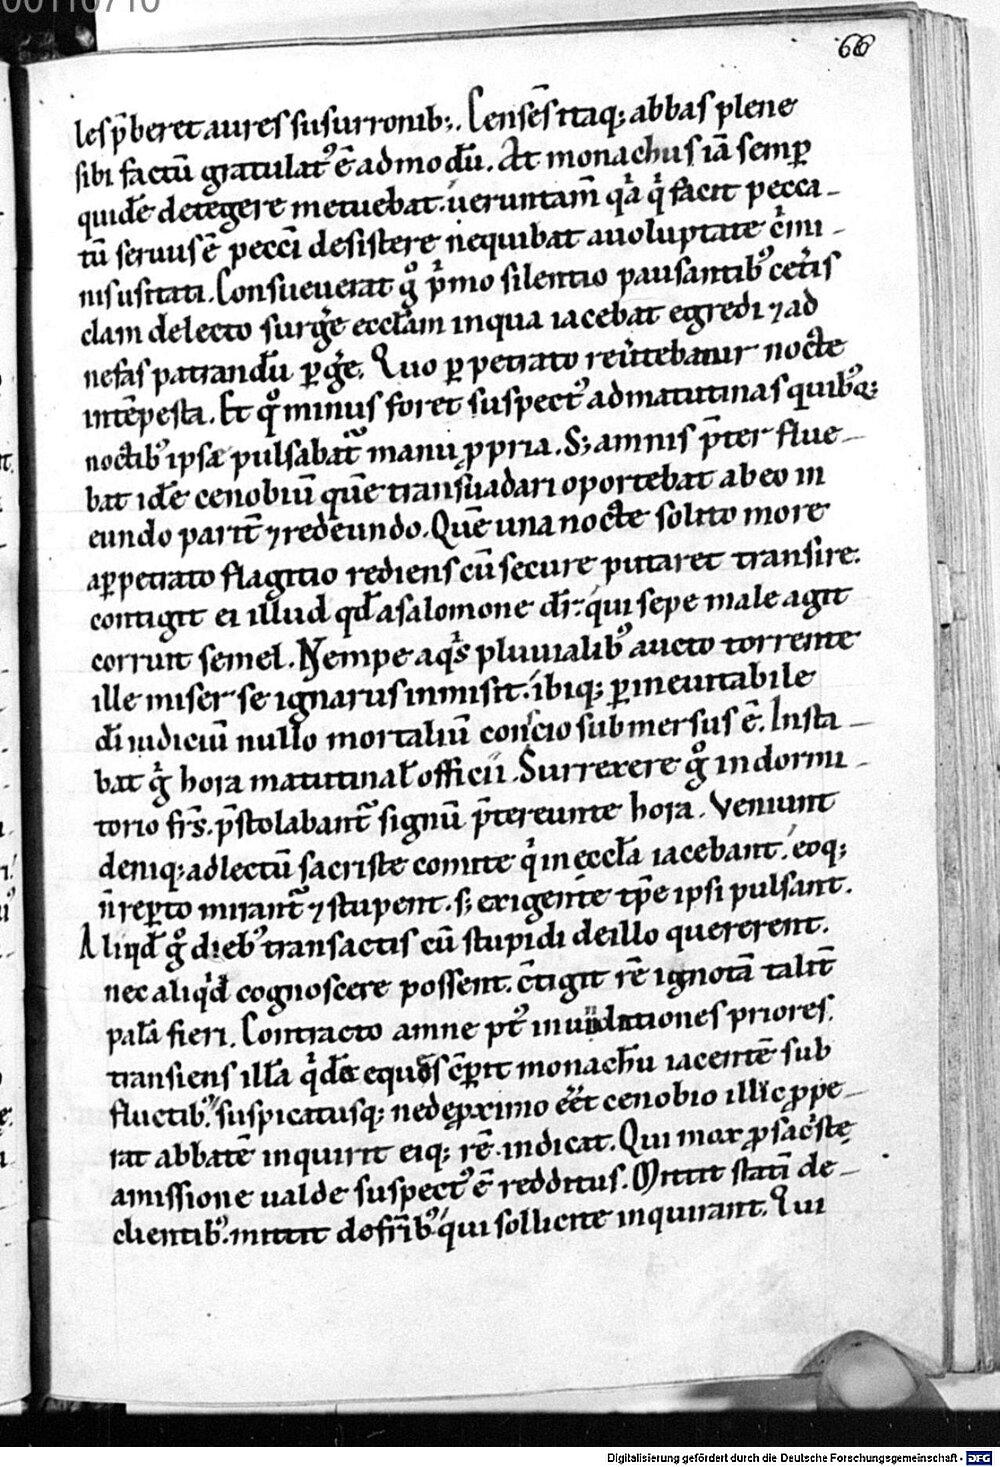 00110710
66
les p̄beret aures susurronib;. Censēs itaq; abbas plene
sibi factū gratulatꝰ ē admodū. At monachus iā semꝑ
quidē detegere metuebat. ueruntam̄ qͥa qͥ facit pecca-
tū seruus ē pecc̄i desistere nequibat a uoluptate c̄mi-
nis usitati. Consueuerat gͦ pͥmo silentio pausantibꝰ cetͥis
clam de lecto surg̃e eccl̄am in qua iacebat egredi ⁊ ad
nefas patrandū ꝑg̃e. Quo ꝑpetrato reūtebatur nocte
intēpesta. Et qͦ minus foret suspectꝰ ad matutinas quibꝰq;
noctibꝰ ipsę pulsabat᷑ manu ꝓpria. S; amnis p̄ter flue-
bat idē cenobiū quē transuadari oportebat ab eo in
eundo parit̄ ⁊ redeundo. Quē una nocte solito more
a ꝑpetrato flagitio rediens cū secure putaret transire.
contigit ei illud qd̄ a salomone dr̄. qui sepe male agit
corruit semel. Nempe aqͥs pluuialibꝰ aucto torrente
ille miser se ignarus inmisit. ibiq; ꝑ ineuitabile
dī iudiciū nullo mortaliū conscio submersus ē. Insta-
bat gͥ hora matutinal̄ officii. Surrexere gͦ in dormi-
torio fr̄s. p̄stolabant᷑ signū p̄tereunte hora. Veniunt
deniq; ad lectū sacriste comite qͥ in eccl̄a iacebant. eoq;
n̄ reꝑto mirant᷑ ⁊ stupent. s; exigente tp̄e ipsi pulsant.
Aliqd̄ gͦ diebꝰ transactis cū stupidi de illo quererent.
nec aliqͥd cognoscere possent. c̄tigit rē ignotā talit̄
palā fieri. Contracto amne pꝰt inundationes priores.
transiens illā qͥdā eques c̄ꝑit monachū iacentē sub
fluctibꝰ. suspicatusq; ne de ꝓximo eēt cenobio illic ꝓpe-
rat abbatē inquirit eiq; rē indicat. Qui mox ꝓ sacͥstę
amissione ualde suspectꝰ ē redditus. Mittit statī de-
clientibꝰ. mittit de fr̄ibꝰ qui sollicite inquirant. Qui
Digitalisierung gefördert durch die Deutsche Forschungsgemeinschaft - DFG